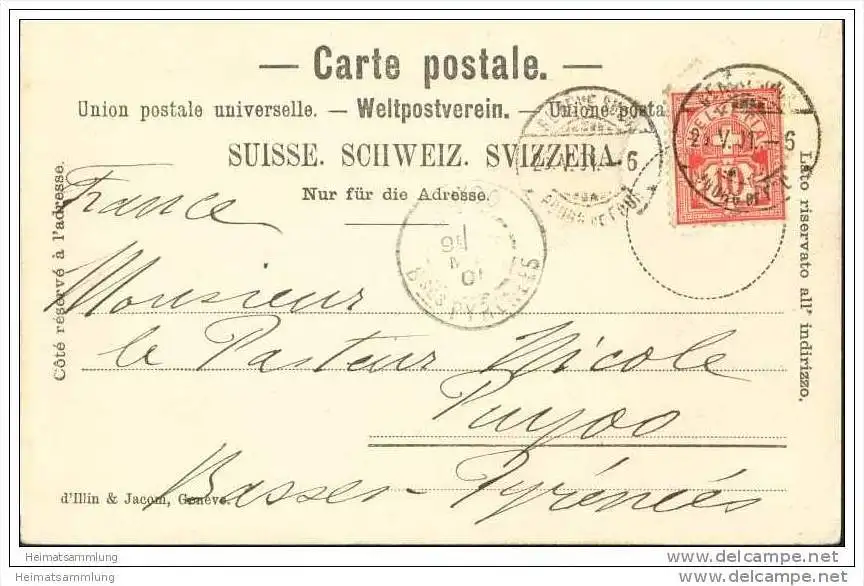 — Carte postale. —
Union postale universelle. — Weltpostverein. — Unione posta
SUISSE. SCHWEIZ. SVIZZERA.
Nur für die Adresse.
Côté réservé à l'adresse.
Lato riservato all' indirizzo.
France
Monsieur
le Pasteur Nicole
Puyoo
Basses-Pyrénées
d'Illin & Jacom, Genève.
HELVETIA
10
PYRENEES
Heimatsammlung
Heimatsammlung
delcampe.net
delcampe.net